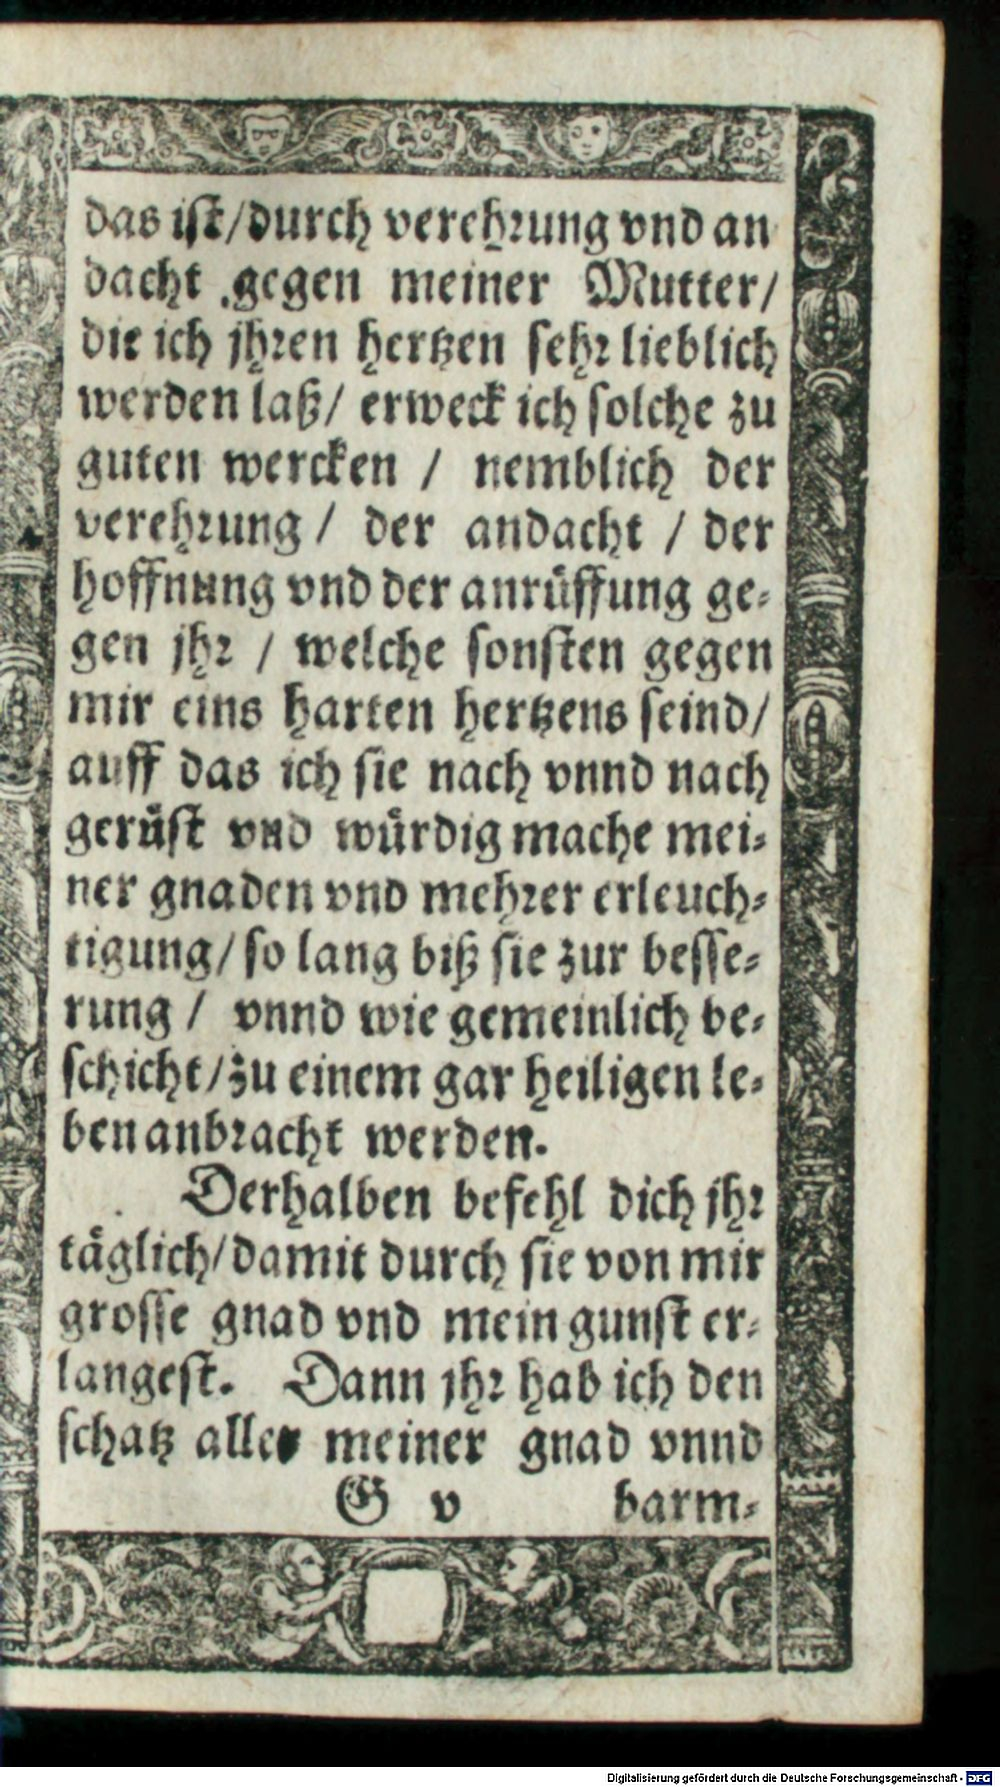 das ist/durch verehrung vnd an
dacht gegen meiner Mutter/
die ich jhren hertzen sehr lieblich
werden laß/ erweck ich solche zu
guten wercken / nemblich der
verehrung / der andacht / der
hoffnung vnd der anrüffung ge-
gen jhr / welche sonsten gegen
mir eins harten hertzens seind/
auff das ich sie nach vnnd nach
gerüst vnd würdig mache mei-
ner gnaden vnd mehrer erleuch-
tigung/ so lang biß sie zur besse-
rung / vnnd wie gemeinlich be-
schicht/zu einem gar heiligen le-
ben anbracht werden.
Derhalben befehl dich jhr
täglich/damit durch sie von mir
grosse gnad vnd mein gunst er-
langest. Dann jhr hab ich den
schatz aller meiner gnad vnnd
G v barm-
Digitalisierung gefördert durch die Deutsche Forschungsgemeinschaft - DFG